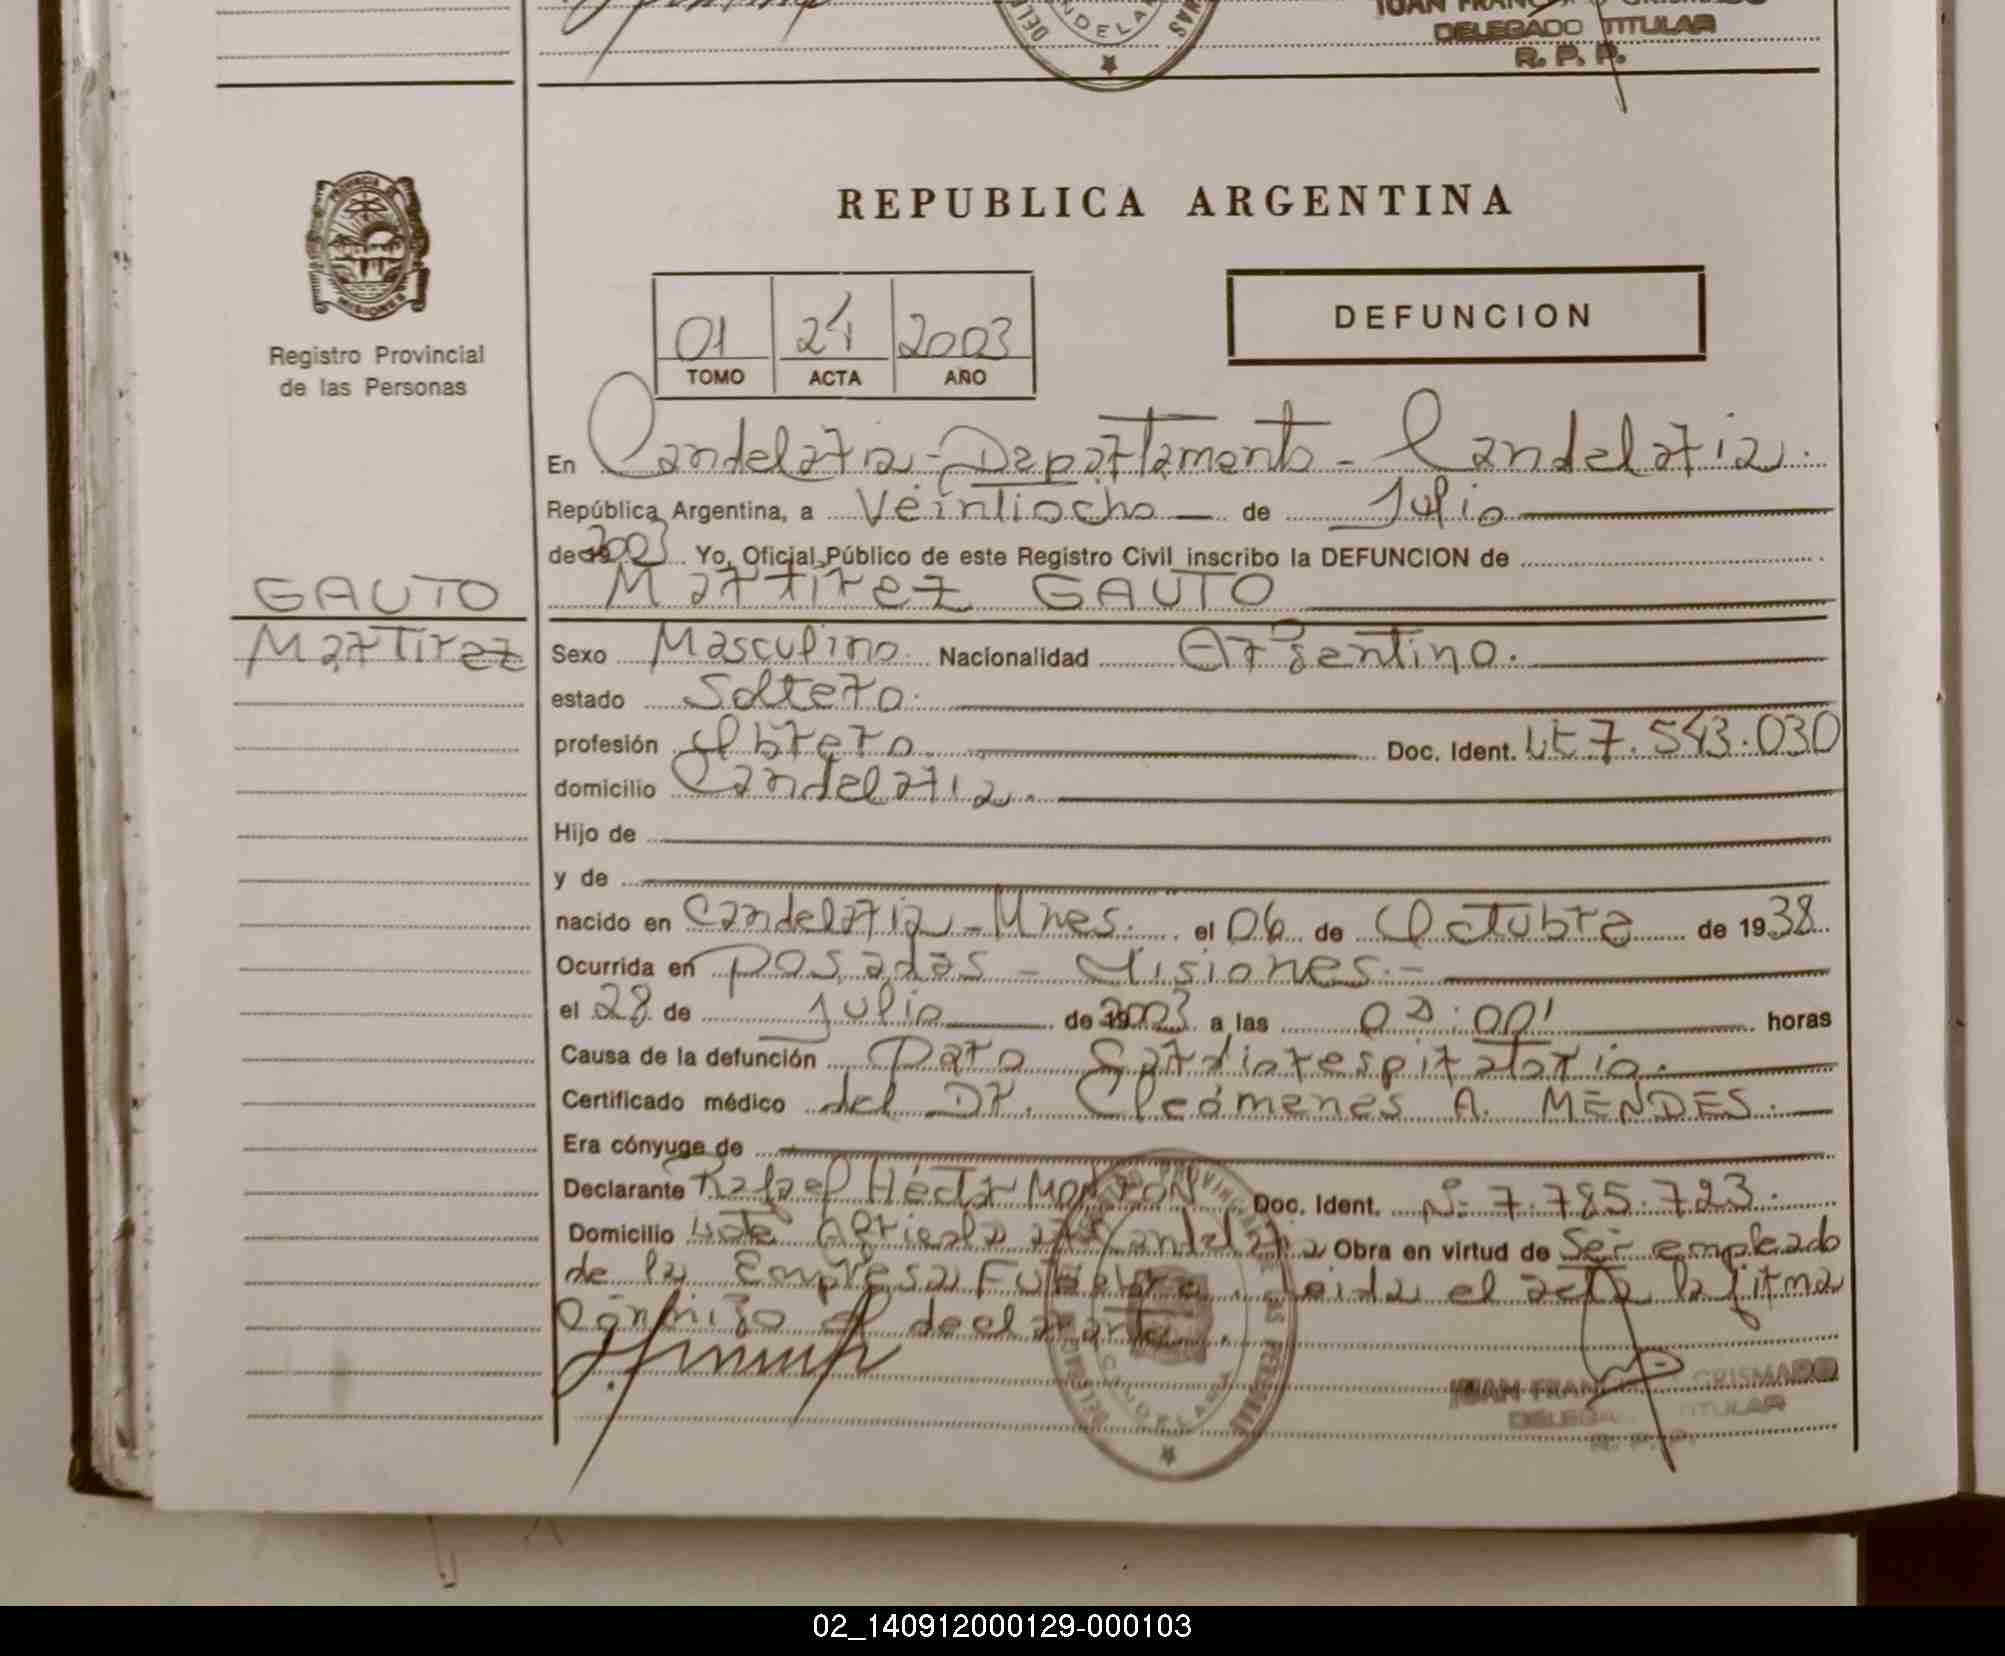 JUAN FRANCISCO GRISMADO
DELEGADO TITULAR
R. P. P.
REPUBLICA ARGENTINA
PROVINCIA DE
MISIONES
Registro Provincial
de las Personas
01 21 2003
TOMO ACTA AÑO
DEFUNCION
En Candelaria - Departamento - Candelaria.
República Argentina, a Veintiocho de Julio
de 2003 Yo, Oficial Público de este Registro Civil inscribo la DEFUNCION de
GAUTO
Martirez GAUTO
Martirez
Sexo Masculino. Nacionalidad Argentino.
estado Soltero.
profesión Obrero. Doc. Ident. LE 7.543.030
domicilio Candelaria.
Hijo de
y de
nacido en Candelaria - Mnes. el 06 de Octubre de 1938.
Ocurrida en Posadas - Misiones. -
el 28 de Julio de 2003 a las horas
Causa de la defunción Paro Cardiorespiratorio.
Certificado médico del Dr. Cleómenes A. MENDES.
Era cónyuge de
Declarante Rafael Héctor MONZON Doc. Ident. Nº 7.785.723.
Domicilio Lote Agricola Candelaria Obra en virtud de Ser empleado
de la Empresa Fúnebre. Leida el acta la firma
conmigo el declarante.
JUAN FRANCISCO GRISMADO
DELEGADO TITULAR
R. P. P.
02_140912000129-000103